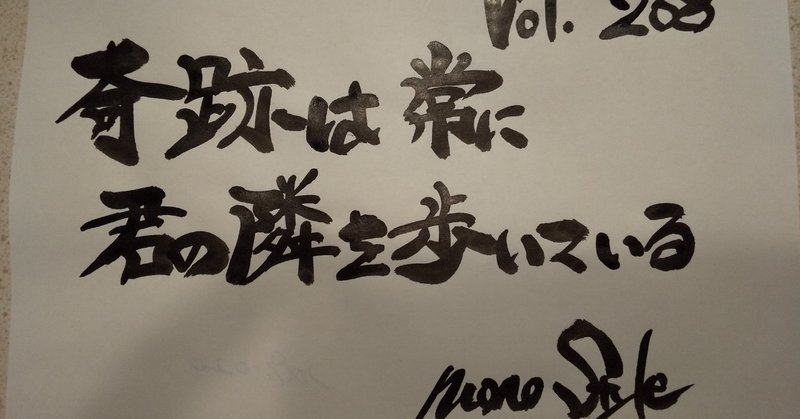 Vol. 208
奇跡は常に
君の隣を歩いている
mono Style